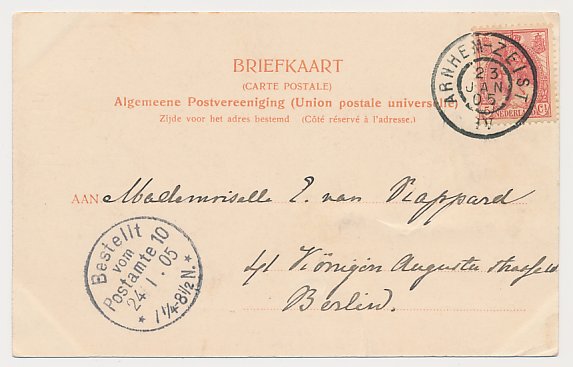 BRIEFKAART
(CARTE POSTALE)
Algemeene Postvereeniging (Union postale universelle)
Zijde voor het adres bestemd. (Côté réservé à l'adresse.)
ARNHEM-ZEIST
23
JAN
05
IV
NEDERLAND
AAN Mademoiselle E. van Rappard
41 Königin Augusta strasse
Berlin.
Bestellt
vom
Postamte 10
24.1.05
* 7¼-8½N. *